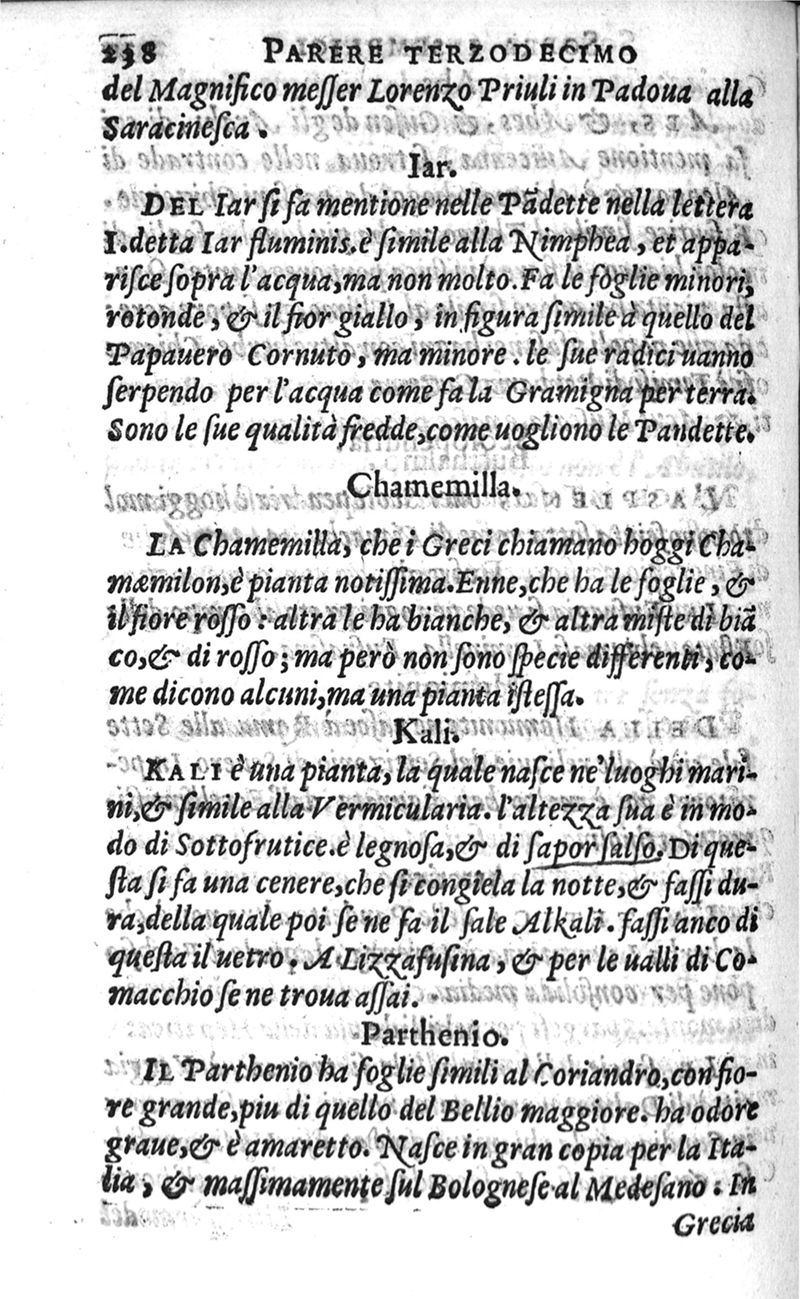 238 PARERE TERZODECIMO
del Magnifico messer Lorenzo Priuli in Padoua alla
Saracinesca.
Iar.
DEL Iar si fa mentione nelle Pādette nella lettera
I. detta Iar fluminis. è simile alla Nimphea, et appa-
risce sopra l'acqua, ma non molto. Fa le foglie minori,
rotonde, & il fior giallo, in figura simile à quello del
Papauero Cornuto, ma minore. le sue radici uanno
serpendo per l'acqua come fa la Gramigna per terra.
Sono le sue qualità fredde, come uogliono le Pandette.
Chamemilla.
LA Chamemilla, che i Greci chiamano hoggi Cha-
mæmilon, è pianta notissima. Enne, che ha le foglie, &
il fiore rosso: altra le ha bianche, & altra miste di biā
co, & di rosso; ma però non sono specie differenti, co-
me dicono alcuni, ma una pianta istessa.
Kali.
KALI è una pianta, la quale nasce ne' luoghi mari-
ni, & simile alla Vermicularia. l'altezza sua è in mo-
do di Sottofrutice. è legnosa, & di sapor salso. Di que-
sta si fa una cenere, che si congiela la notte, & fassi du-
ra, della quale poi se ne fa il sale Alkali. fassi anco di
questa il uetro. A Lizzafusina, & per le ualli di Co-
macchio se ne troua assai.
Parthenio.
IL Parthenio ha foglie simili al Coriandro, con fio-
re grande, piu di quello del Bellio maggiore. ha odore
graue, & è amaretto. Nasce in gran copia per la Ita-
lia, & massimamente sul Bolognese al Medesano. In
Grecia